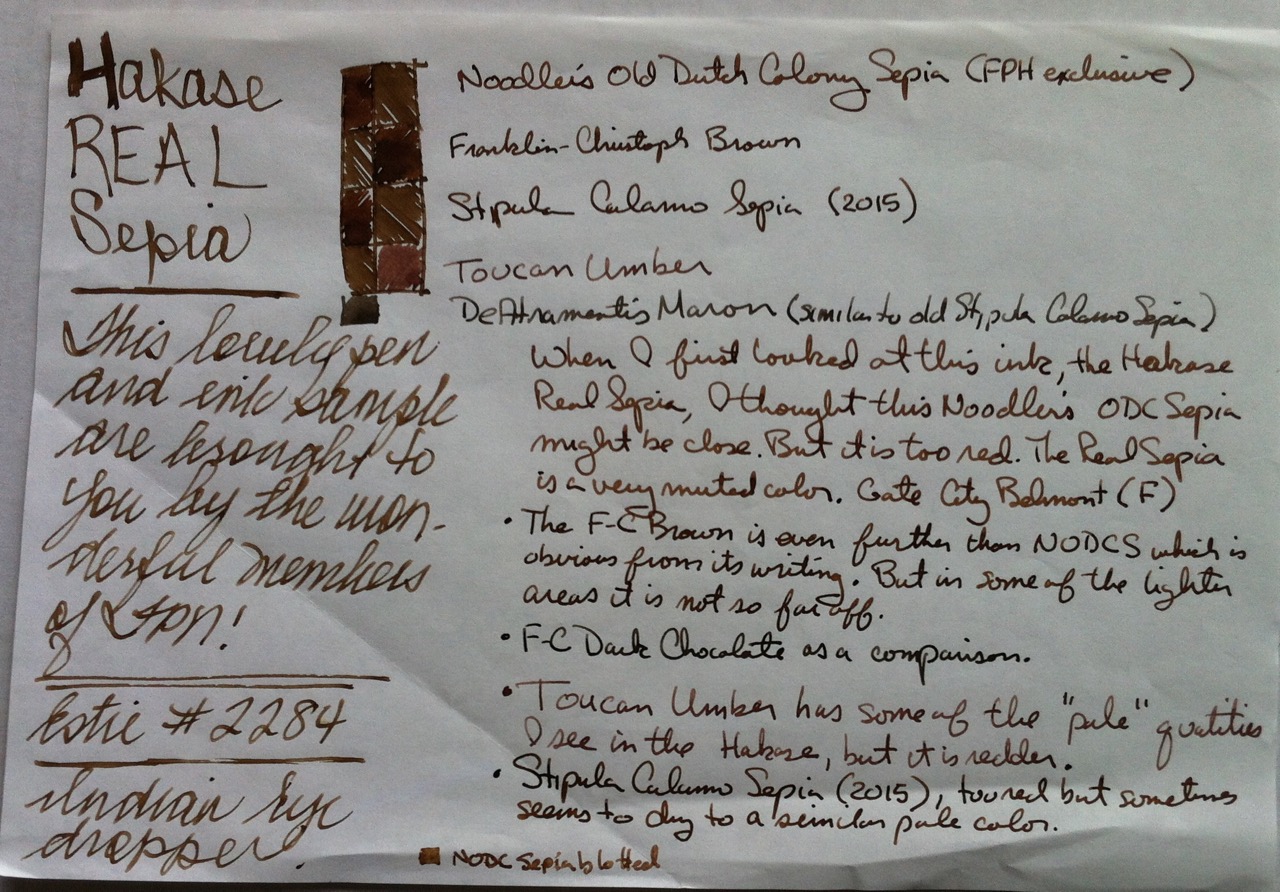 Hakase
REAL
Sepia
This lovely pen
and ink sample
are brought to
you by the won-
derful members
of Fpn!
Estie #2284
Indian Eye
dropper.
Noodler's Old Dutch Colony Sepia (FPH exclusive)
Franklin-Christoph Brown
Stipula Calamo Sepia (2015)
Toucan Umber
DeAtramentis Maron (similar to old Stipula Calamo Sepia)
When I first looked at this ink, the Hakase
Real Sepia, I thought this Noodler's ODC Sepia
might be close. But it is too red. The Real Sepia
is a very muted color. Gate City Belmont (F)
• The F-C Brown is even further than NODCS which is
obvious from its writing. But in some of the lighter
areas it is not so far off.
• F-C Dark Chocolate as a comparison.
• Toucan Umber has some of the "pale" qualities
I see in the Hakase, but it is redder.
• Stipula Calamo Sepia (2015), too red but sometimes
seems to dry to a similar pale color.
NODC Sepia blotted